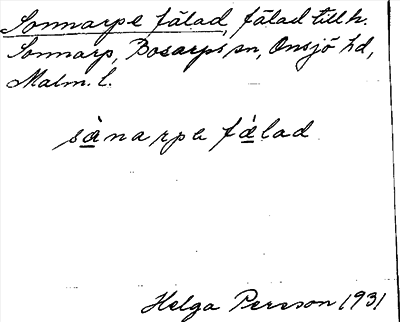 Sonnarps fälad, fälad till h.
Sonnarp, Bosarps sn, Onsjö hd,
Malm. l.
sånarpa fälad
Helga Persson 1931